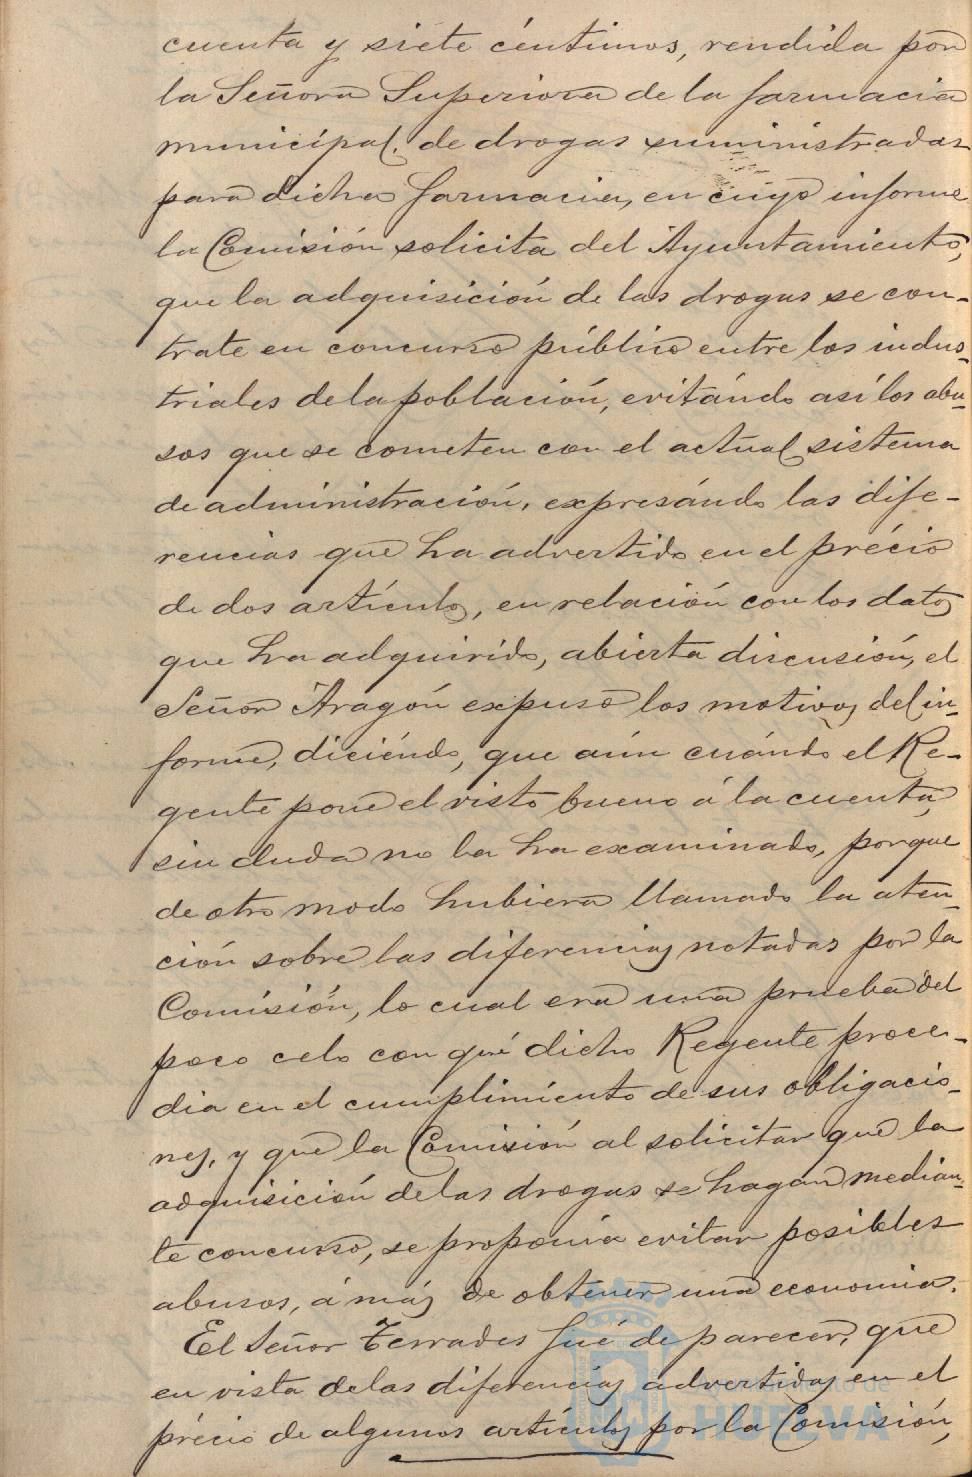 cuenta y siete céntimos, rendida por
la Señora Superiora de la farmacia
municipal, de drogas suministradas
para dicha farmacia, en cuyo informe
la Comisión solicita del Ayuntamiento,
que la adquisición de las drogas se con-
trate en concurso público entre los indus-
triales de la población, evitándo así los abu-
sos que se cometen con el actual sistema
de administración, expresándo las dife-
rencias que ha advertido en el précio
de dos artículos, en relación con los datos
que ha adquirido, abierta discusión, el
Señor Aragón expuso los motivos del in-
forme, diciéndo, que aún cuándo el Re-
gente pone el visto bueno á la cuenta,
sin duda no la ha examinado, porque
de otro modo hubiera llamado la aten-
ción sobre las diferencias notadas por la
Comisión, lo cual era una prueba del
poco celo con qué dicho Regente proce-
dia en el cumplimiento de sus obligacio-
nes, y que la Comisión al solicitar que la
adquisición de las drogas se hagan median-
te concurso, se proponia evitar posibles
abusos, á más de obtener una economia.
El Señor Terrades fué de parecer, que
en vista de las diferencias advertidas en el
précio de algunos artículos por la Comisión,
Ayuntamiento de
HUELVA